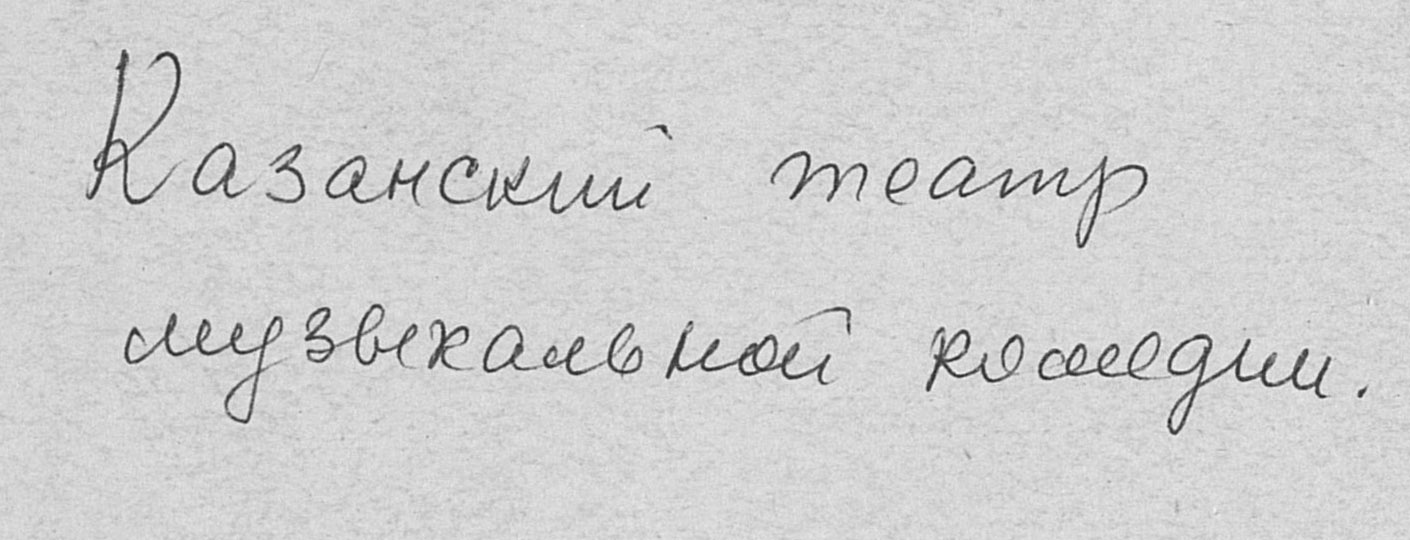 Казанский театр
музыкальной комедии.